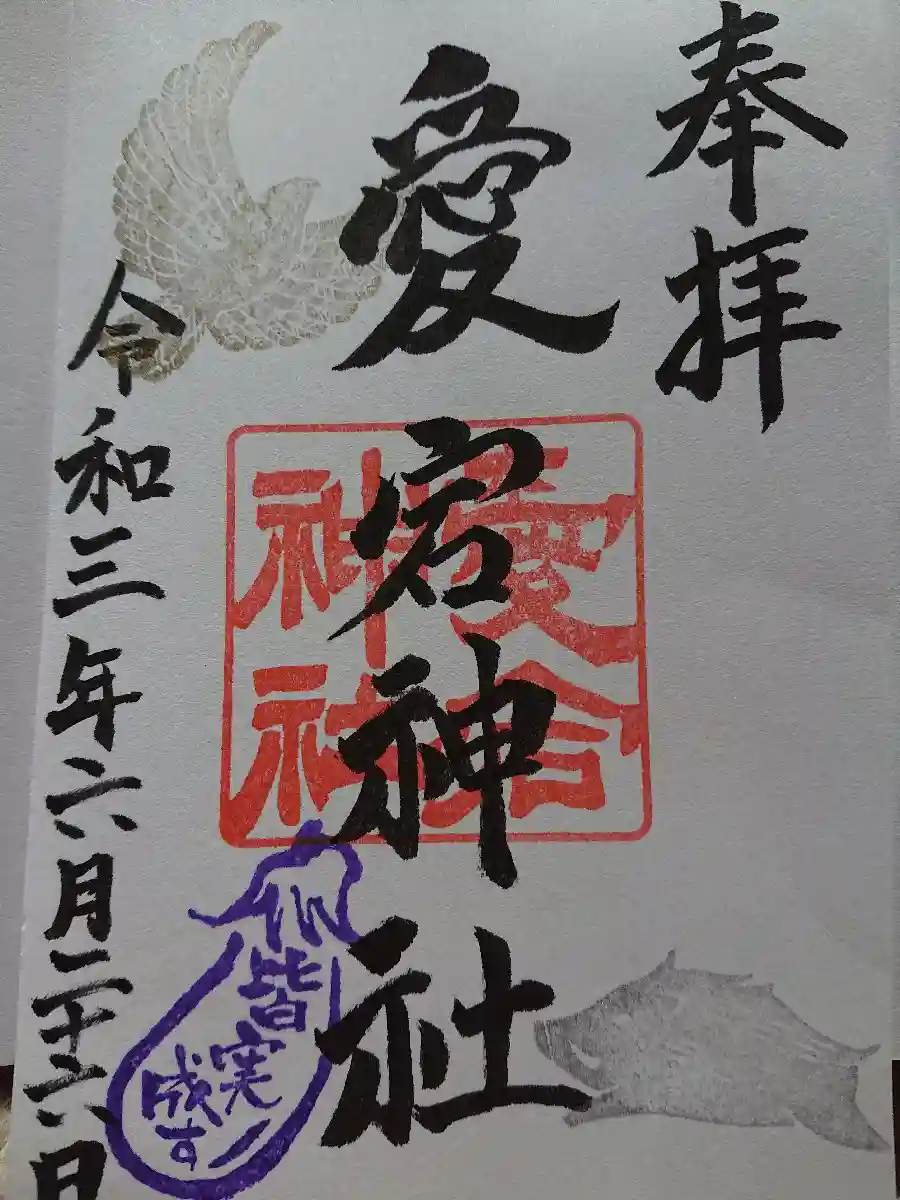 奉拝
愛宕神社
愛宕神社
皆実
成す
令和三年六月二十六日